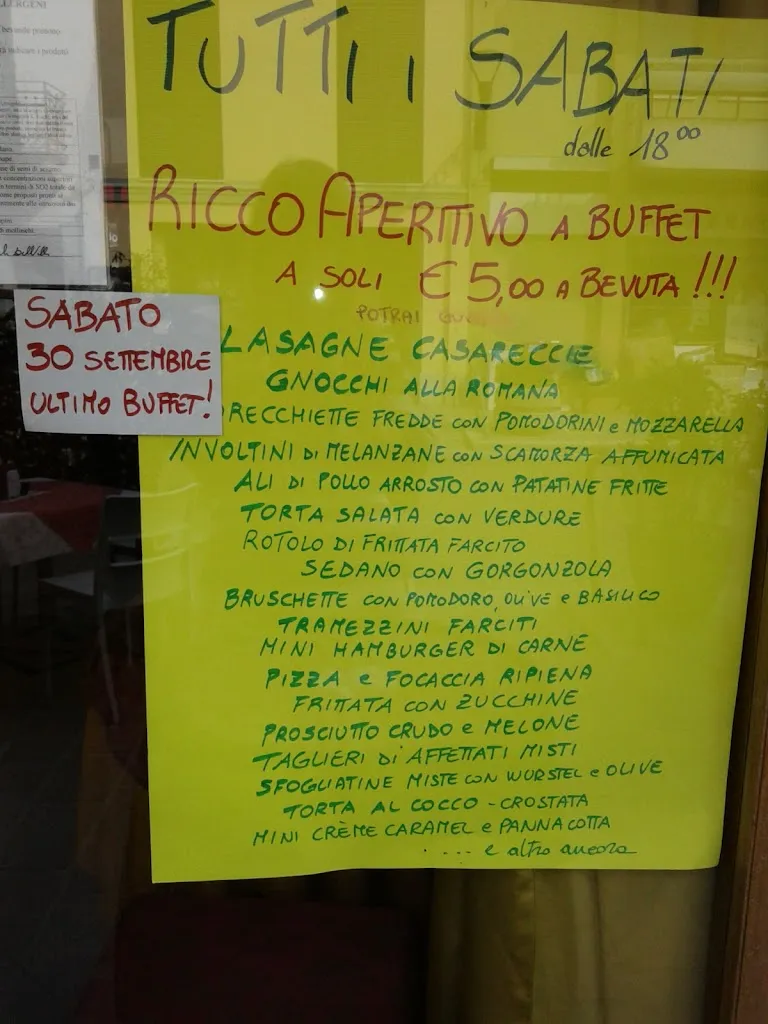 TUTTI I SABATI
dalle 18°°
RICCO APERITIVO A BUFFET
A SOLI € 5,00 A BEVUTA !!!
POTRAI
SABATO
30 SETTEMBRE
ULTIMO BUFFET!
LASAGNE CASARECCIE
GNOCCHI ALLA ROMANA
RECCHIETTE FREDDE CON POMODORINI e MOZZARELLA
INVOLTINI DI MELANZANE CON SCAMORZA AFFUMICATA
ALI DI POLLO ARROSTO CON PATATINE FRITTE
TORTA SALATA CON VERDURE
ROTOLO DI FRITTATA FARCITO
SEDANO CON GORGONZOLA
BRUSCHETTE CON POMODORO, OLIVE e BASILICO
TRAMEZZINI FARCITI
MINI HAMBURGER DI CARNE
PIZZA e FOCACCIA RIPIENA
FRITTATA CON ZUCCHINE
PROSCIUTTO CRUDO e MELONE
TAGLIERI DI AFFETTATI MISTI
SFOGLIATINE MISTE CON WURSTEL e OLIVE
TORTA AL COCCO - CROSTATA
MINI CRÈME CARAMEL e PANNA COTTA
.... e altro ancora